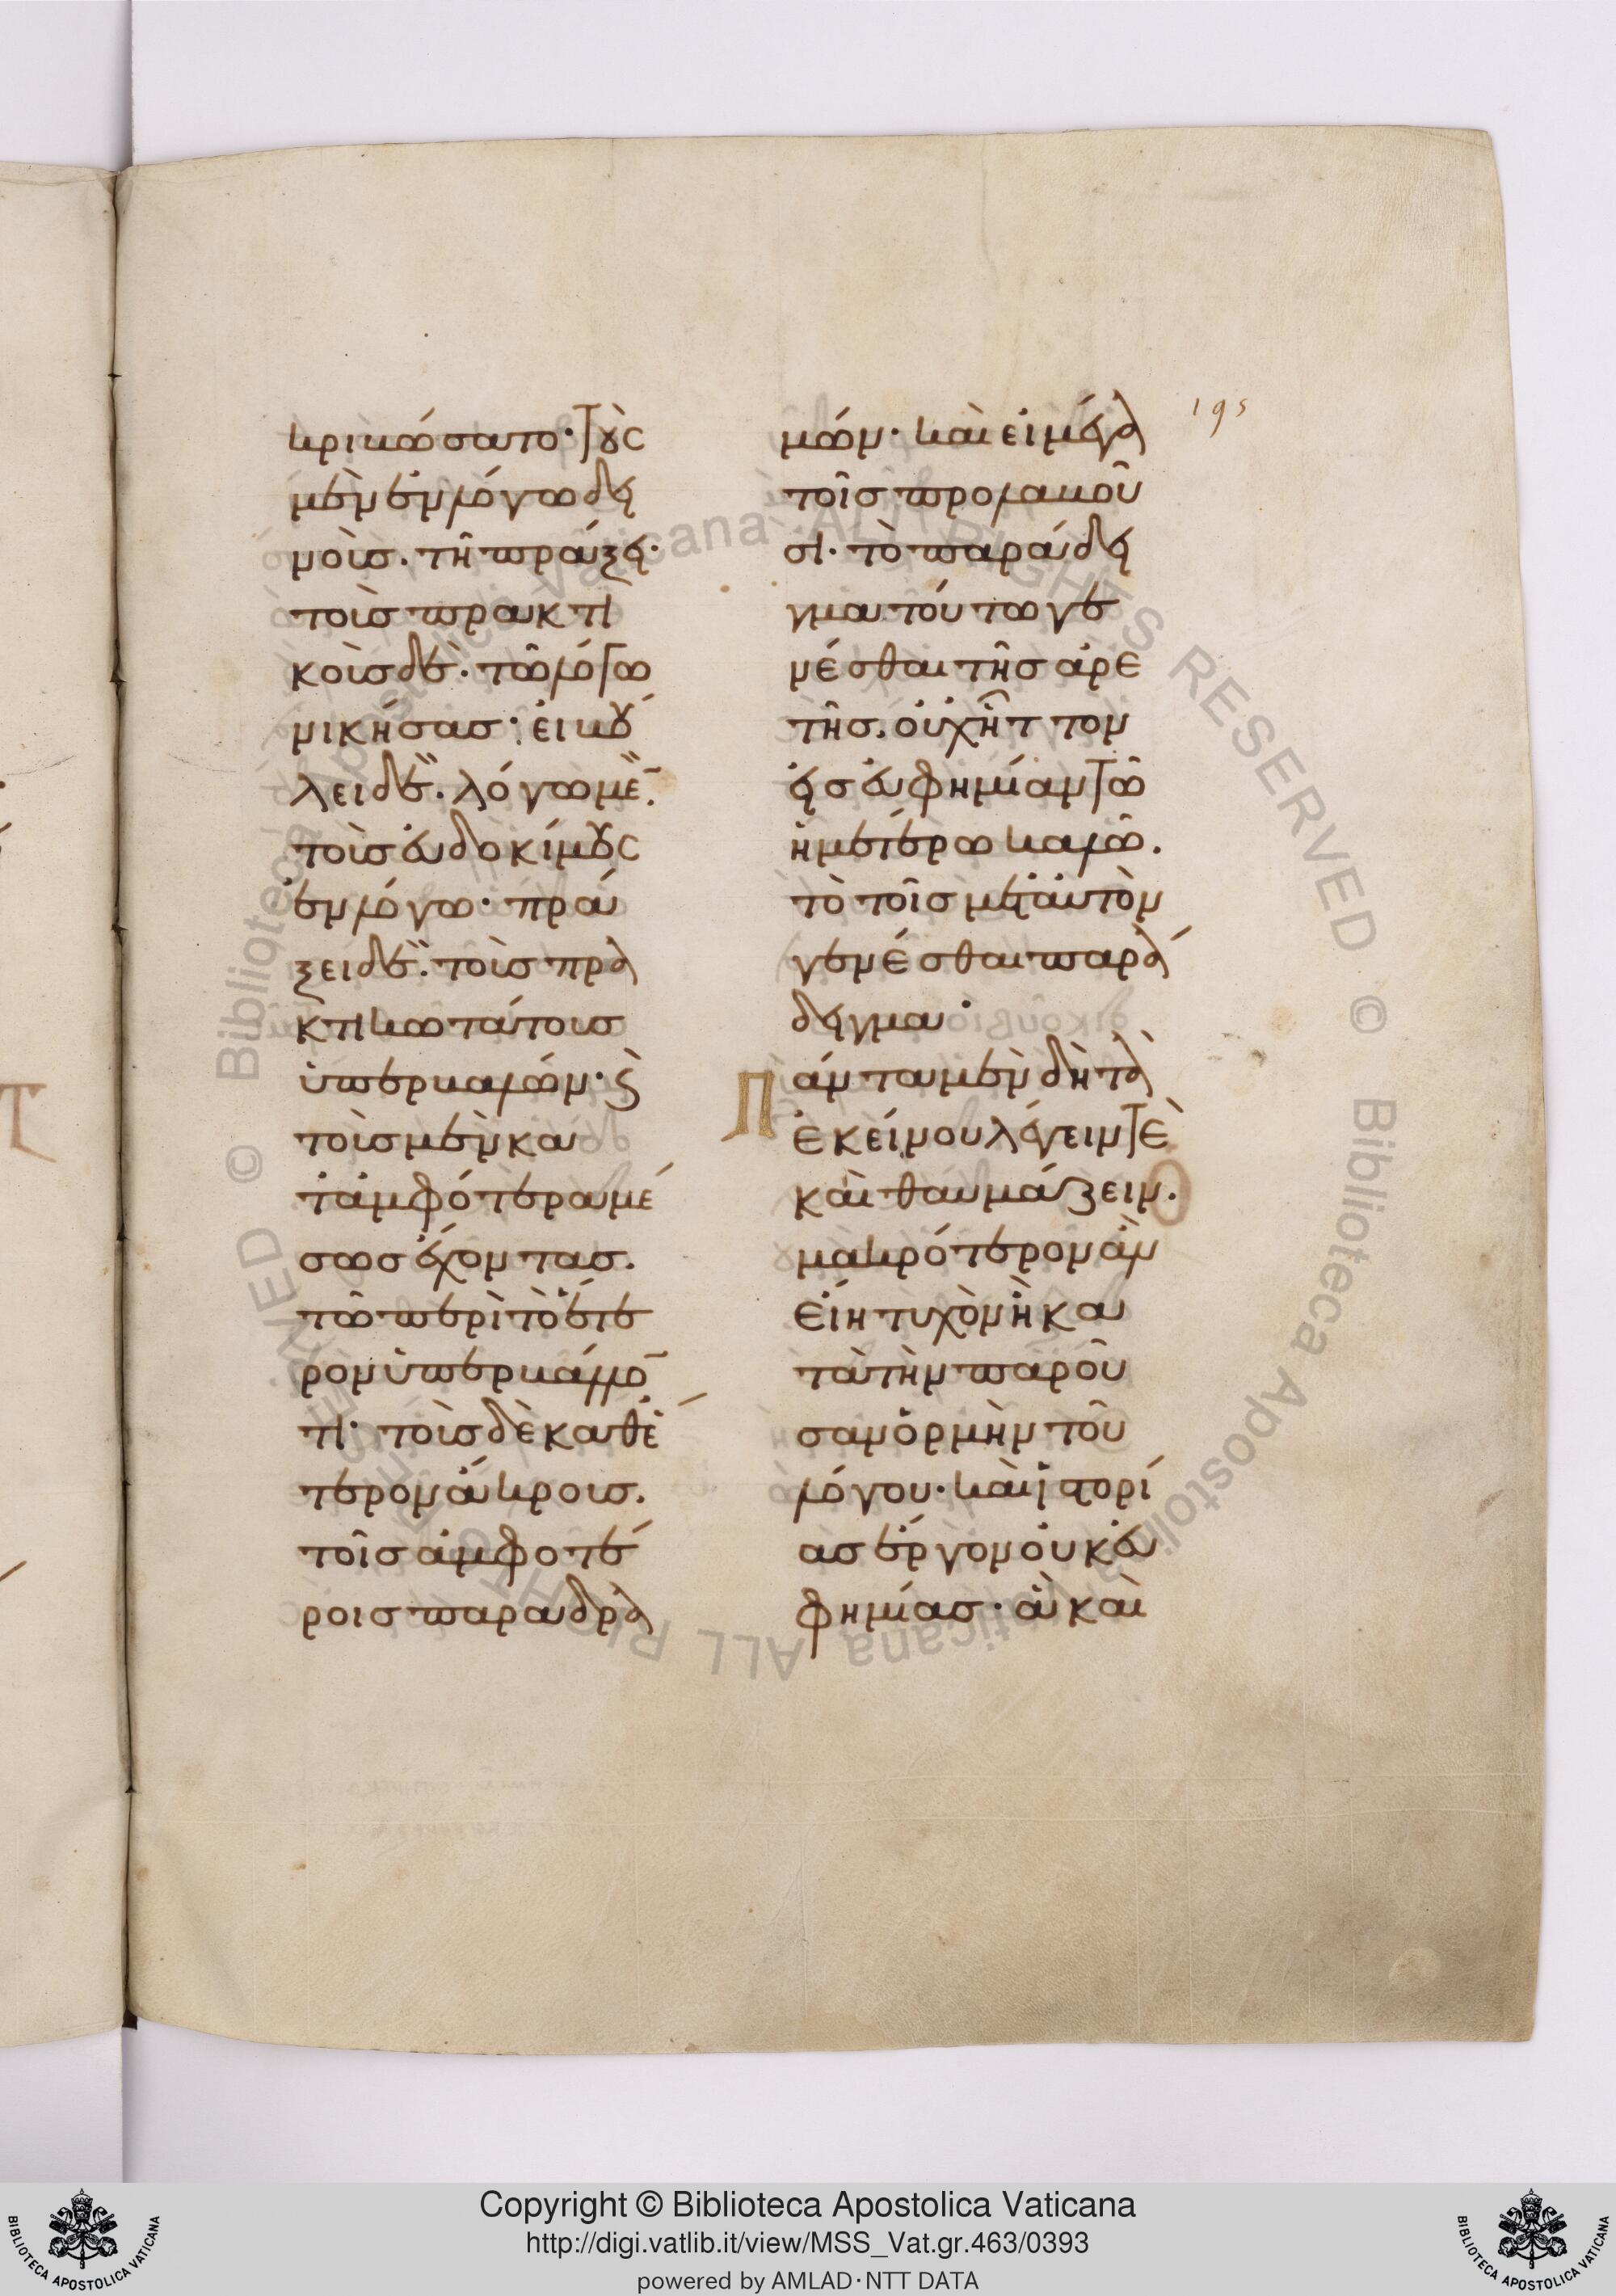 κρικώσατο· τοὺς
μὲν ἐν λόγω δει
νοὺς. τῆ πράξει·
τοὺς πρακτι
κοὺς δὲ. τῶ λόγω
νικήσας· εἰ βού
λει δὲ. λόγω μὲν.
τοὺς εὐδοκίμους
ἐν λόγω· πρά
ξει δὲ. τοὺς πρα
κτικωτάτους
ὑπερβαλών· καὶ
τοὺς μὲν κα
τ' ἀμφότερα μέ
σως ἔχοντας.
τῶ περὶ τὸ ἕτε
ρον ὑπερβάλλον
τι· τοὺς δὲ καθέ
τερον ἄκρους.
τοῖς ἀμφοτέ
ροις παραδρα
μών· καὶ εἰ μέγα
τοῖς προλαβοῦ
σι· τὸ παράδει
γμα τούτω γε
νέσθαι τῆς ἀρε
τῆς. οὐχ ἧττον
εἰς εὐφημίαν τῶ
ἡμετέρω καλῶ.
τὸ τοῖς μετ' αὐτὸν
γενέσθαι παρά
δειγμα·
Πάντα μὲν δὴ τὰ
ἐκείνου λέγειν τὲ
καὶ θαυμάζειν.
μακρότερον ἂν
εἴη τυχὸν ἢ κα
τὰ τὴν παροῦ
σαν ὁρμὴν τοῦ
λόγου· καὶ ἱστορί
ας ἔργον οὐκ εὐ
φημίας· ἃ καὶ
195
Copyright © Biblioteca Apostolica Vaticana
http://digi.vatlib.it/view/MSS_Vat.gr.463/0393
powered by AMLAD·NTT DATA
BIBLIOTECA APOSTOLICA VATICANA
BIBLIOTECA APOSTOLICA VATICANA